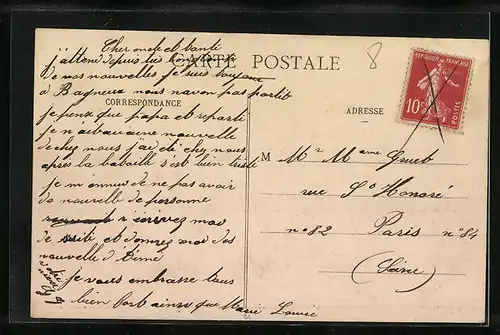 Cher oncle et tante
CARTE POSTALE
8
j'attend depuis
de vos nouvelles je suis toujour
a Bagneux nous navon pas partit
CORRESPONDANCE
je pense que papa et reparti
je n ai aucune nouvelle
de chez nous j'ai di chez nous
après la bataille s'est bien triste
je m ennui de ne pas avoir
de nouvelle de personne
écrivez moi
de suite et donnez moi des
nouvelle d
je vous embrasse tous
bien fort ainsi que Marie Louise
ADRESSE
REPUBLIQUE FRANÇAISE
10c
POSTES
M Mr Mame
rue St Honoré
n° 82 Paris n° 84
(Seine)